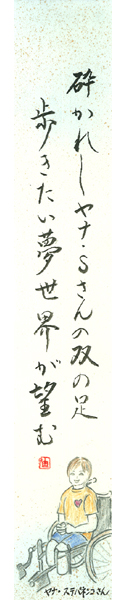 砕かれしヤナ・Sさんの双の足
歩きたい夢世界が望む
ヤナ・ステパネンコさん